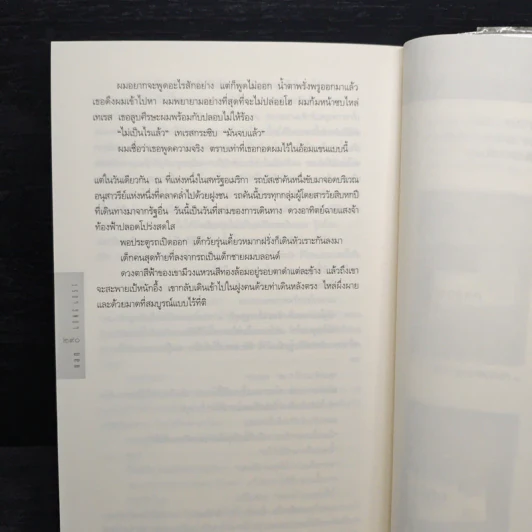 ผมอยากจะพูดอะไรสักอย่าง แต่ก็พูดไม่ออก น้ำตาพรั่งพรูออกมาแล้ว
เธอดึงผมเข้าไปหา ผมพยายามอย่างที่สุดที่จะไม่ปล่อยโฮ ผมก้มหน้าซบไหล่
เทเรส เธอลูบศีรษะผมพร้อมกับปลอบไม่ให้ร้อง
“ไม่เป็นไรแล้ว” เทเรสกระซิบ “มันจบแล้ว”
ผมเชื่อว่าเธอพูดความจริง ตราบเท่าที่เธอกอดผมไว้ในอ้อมแขนแบบนี้
แต่ในวันเดียวกัน ณ ที่แห่งหนึ่งในสหรัฐอเมริกา รถบัสเช่าคันหนึ่งขับมาจอดบริเวณ
อนุสาวรีย์แห่งหนึ่งที่คลาคล่ำไปด้วยฝูงชน รถคันนี้บรรทุกกลุ่มผู้โดยสารวัยสิบหกปี
ที่เดินทางมาจากรัฐอื่น วันนี้เป็นวันที่สามของการเดินทาง ดวงอาทิตย์ฉายแสงจ้า
ท้องฟ้าปลอดโปร่งสดใส
พอประตูรถเปิดออก เด็กวัยรุ่นเคี้ยวหมากฝรั่งก็เดินหัวเราะกันลงมา
เด็กคนสุดท้ายที่ลงจากรถเป็นเด็กชายผมบลอนด์
ดวงตาสีฟ้าของเขามีวงแหวนสีทองล้อมอยู่รอบตาดำแต่ละข้าง แล้วถึงเขา
จะสะพายเป้หนักอึ้ง เขากลับเดินเข้าไปในฝูงคนด้วยท่าเดินหลังตรง ไหล่ผึ่งผาย
และด้วยมาดที่สมบูรณ์แบบไร้ที่ติ